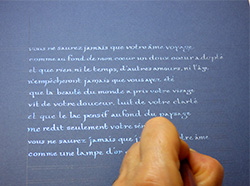 vous ne saurez jamais que votre âme voyage
comme au fond de mon cœur un doux cœur adopté
et que rien ni le temps, d'autres amours, ni l'âge
n'empêchent jamais que vous ayez été
que la beauté du monde a pris votre visage
vit de votre douceur, luit de votre clarté
et que le lac pensif au fond du paysage
me redit seulement votre
vous ne saurez jamais que j' votre âme
comme une lampe d'or